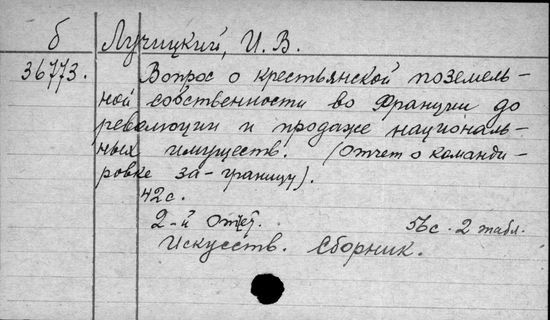 б Лучицкий, И. В.
36773. Вопрос о крестьянской поземель-
ной собственности во Франции до
революции и продаже националь-
ных имуществ. (Отчет о команди-
ровке за-границу).
42 с.
2-й Отчет. 56 с. 2 табл.
Искусств. Сборник.